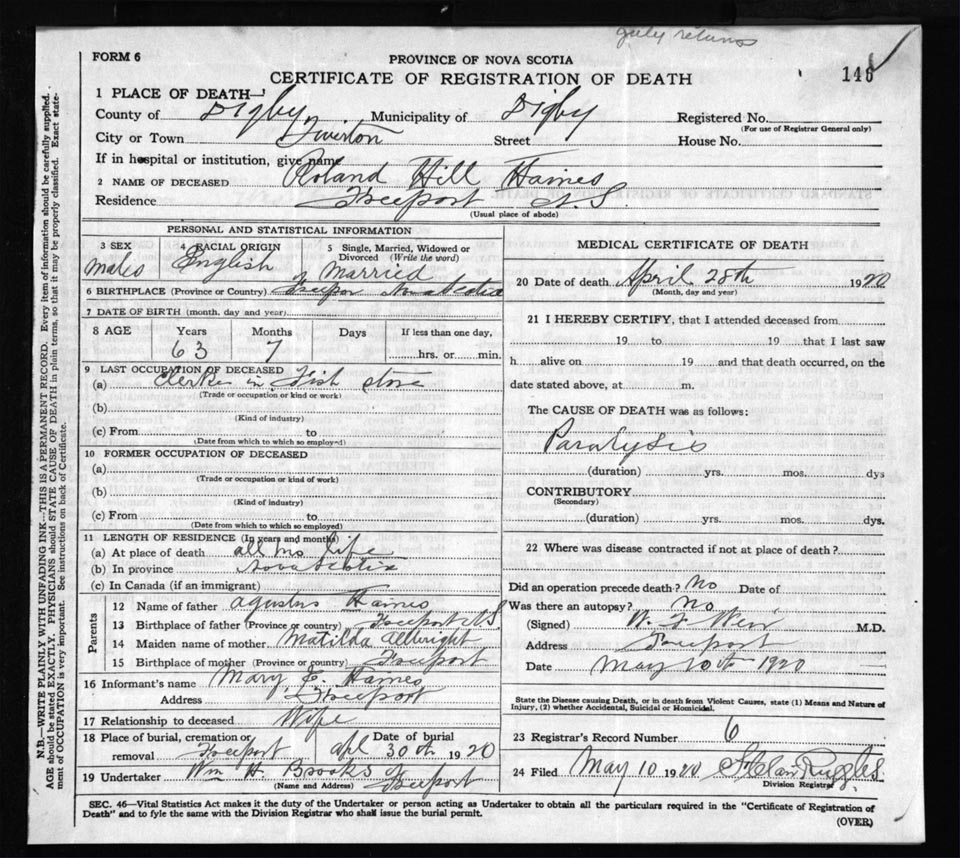 July returns
FORM 6
PROVINCE OF NOVA SCOTIA
CERTIFICATE OF REGISTRATION OF DEATH
146
1 PLACE OF DEATH—
County of Digby Municipality of Digby Registered No.
(For use of Registrar General only)
City or Town Tiverton Street House No.
If in hospital or institution, give name
2 NAME OF DECEASED Roland Hill Haines
Residence Freeport N.S.
(Usual place of abode)
PERSONAL AND STATISTICAL INFORMATION
3 SEX 4 RACIAL ORIGIN 5 Single, Married, Widowed or Divorced (Write the word)
Males English Married
6 BIRTHPLACE (Province or Country) Freepor Nova Scotia
7 DATE OF BIRTH (month, day and year)
8 AGE Years Months Days If less than one day,
63 7 hrs. or min.
9 LAST OCCUPATION OF DECEASED
(a) Clerke in Fish store
(Trade or occupation or kind or work)
(b)
(Kind of industry)
(c) From to
(Date from which to which so employed)
10 FORMER OCCUPATION OF DECEASED
(a)
(Trade or occupation or kind of work)
(b)
(Kind of industry)
(c) From to
(Date from which to which so employed)
11 LENGTH OF RESIDENCE (In years and months)
(a) At place of death all his life
(b) In province Nova Scotia
(c) In Canada (if an immigrant)
Parents
12 Name of father Agustus Haines
13 Birthplace of father (Province or country) Freeport N.S.
14 Maiden name of mother Matilda Allwright
15 Birthplace of mother (Province or country) Freeport
16 Informant's name Mary E. Haines
Address Freeport
17 Relationship to deceased Wife
18 Place of burial, cremation or removal Freeport Date of burial apl 30th 1920
19 Undertaker Wm H. Brooks of Freeport
(Name and Address)
MEDICAL CERTIFICATE OF DEATH
20 Date of death April 28th 1920
(Month, day and year)
21 I HEREBY CERTIFY, that I attended deceased from
19 to 19 that I last saw
h alive on 19 and that death occurred, on the
date stated above, at m.
The CAUSE OF DEATH was as follows:
Paralysis
(duration) yrs. mos. dys
CONTRIBUTORY
(Secondary)
(duration) yrs. mos. dys.
22 Where was disease contracted if not at place of death?
Did an operation precede death? No Date of
Was there an autopsy? No
(Signed) W. F. Weir M.D.
Address Freeport
Date May 10th 1920
State the Disease causing Death, or in death from Violent Causes, state (1) Means and Nature of
Injury, (2) whether Accidental, Suicidal or Homicidal.
23 Registrar's Record Number 6
24 Filed May 10 1920 Ruggles
Division Registrar
SEC. 46—Vital Statistics Act makes it the duty of the Undertaker or person acting as Undertaker to obtain all the particulars required in the "Certificate of Registration of
Death" and to fyle the same with the Division Registrar who shall issue the burial permit.
(OVER)
N.B.—WRITE PLAINLY WITH UNFADING INK—THIS IS A PERMANENT RECORD. Every item of information should be carefully supplied.
AGE should be stated EXACTLY. PHYSICIANS should STATE CAUSE OF DEATH in plain terms, so that it may be properly classified. Exact state-
ment of OCCUPATION is very important. See instructions on back of Certificate.